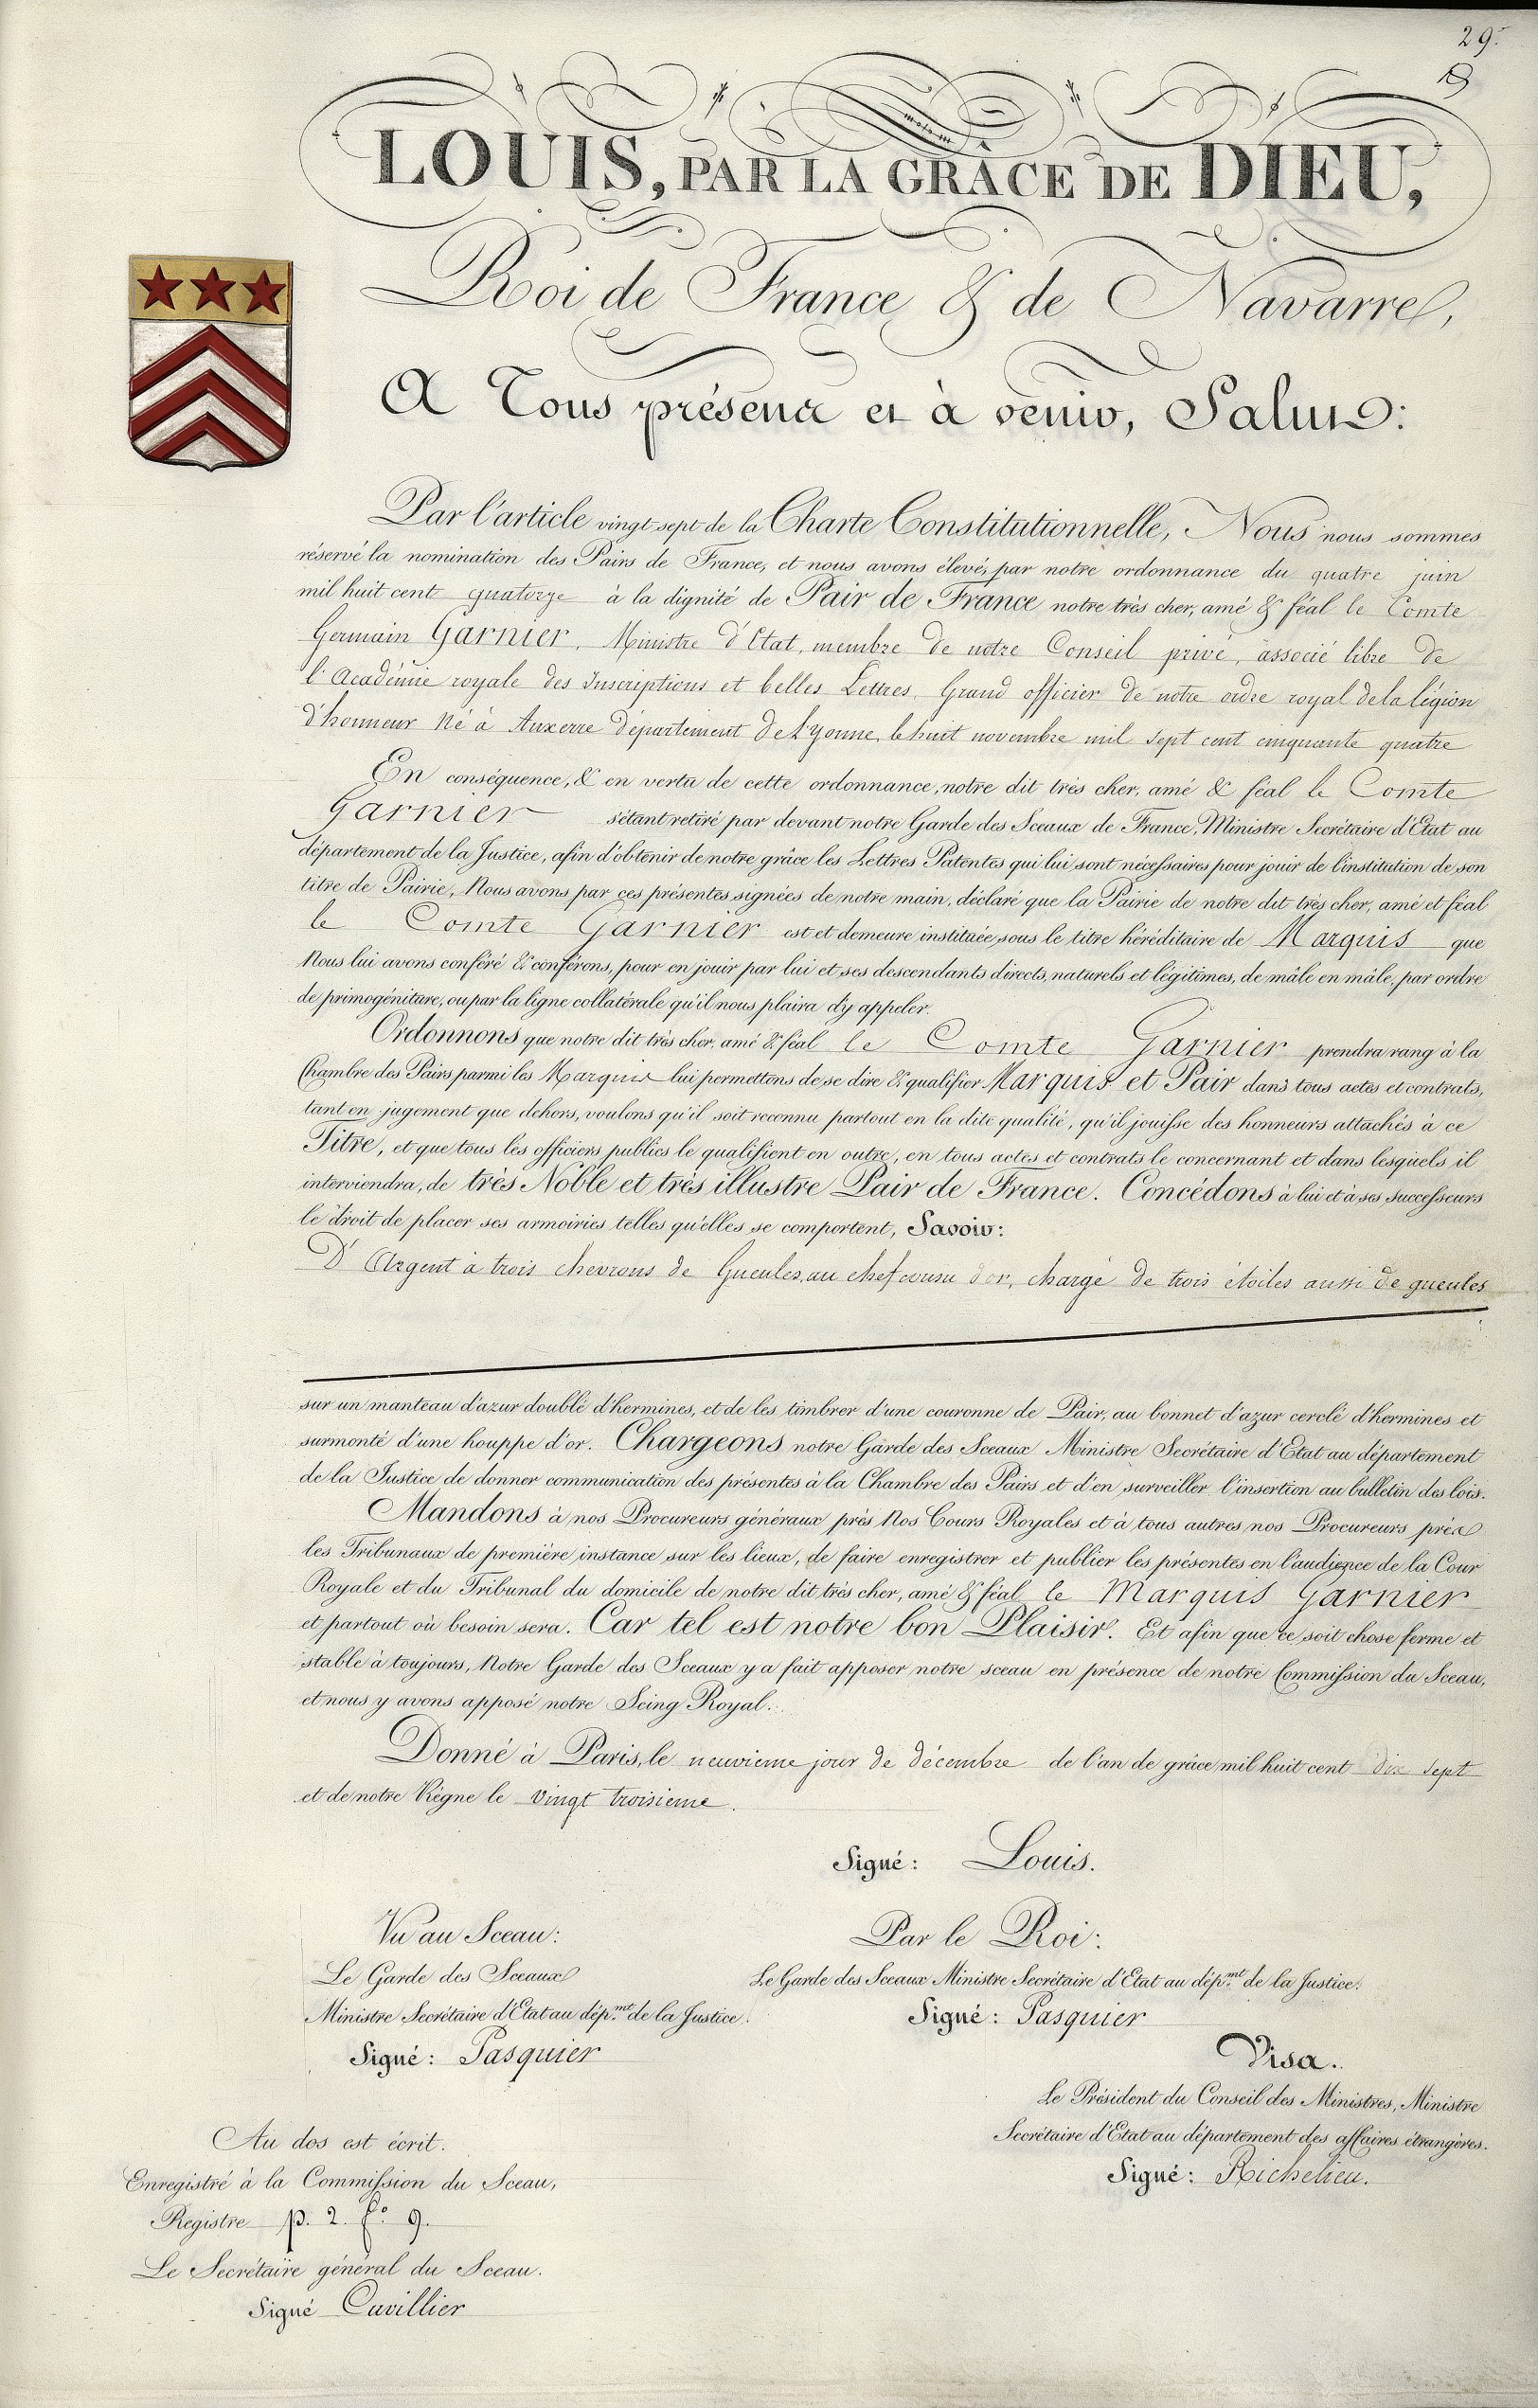 29.
LOUIS, PAR LA GRÂCE DE DIEU,
Roi de France & de Navarre,
A Tous présens et à venir, Salut:
Par l'article vingt-sept de la Charte Constitutionnelle, Nous nous sommes
réservé la nomination des Pairs de France, et nous avons élevé, par notre ordonnance du quatre juin
mil huit cent quatorze à la dignité de Pair de France notre très cher, amé & féal le Comte
Germain Garnier, Ministre d'Etat, membre de notre Conseil privé, associé libre de
l'Académie royale des Inscriptions et belles Lettres, Grand officier de notre ordre royal de la légion
d'honneur Né à Auxerre département de L'yonne, le huit novembre mil sept cent cinquante quatre
En conséquence, & en vertu de cette ordonnance, notre dit très cher, amé & féal le Comte
Garnier s'étant retiré par devant notre Garde des Sceaux de France, Ministre Secrétaire d'Etat au
département de la Justice, afin d'obtenir de notre grâce les Lettres Patentes qui lui sont nécessaires pour jouir de l'institution de son
titre de Pairie, Nous avons par ces présentes signées de notre main, déclaré que la Pairie de notre dit très cher, amé et féal
le Comte Garnier est et demeure instituée sous le titre héréditaire de Marquis que
Nous lui avons conféré & conférons, pour en jouir par lui et ses descendants directs, naturels et légitimes, de mâle en mâle, par ordre
de primogéniture, ou par la ligne collatérale qu'il nous plaira d'y appeler.
Ordonnons que notre dit très cher, amé & féal le Comte Garnier prendra rang à la
Chambre des Pairs parmi les Marquis lui permettons de se dire & qualifier Marquis et Pair dans tous actes et contrats,
tant en jugement que dehors, voulons qu'il soit reconnu partout en la dite qualité, qu'il jouisse des honneurs attachés à ce
Titre, et que tous les officiers publics le qualifient en outre, en tous actes et contrats le concernant et dans lesquels il
interviendra, de très Noble et très illustre Pair de France. Concédons à lui et à ses successeurs
le droit de placer ses armoiries telles qu'elles se comportent, Savoir:
D'Argent à trois chevrons de Gueules, au chef cousu d'or, chargé de trois étoiles aussi de gueules
sur un manteau d'azur doublé d'hermines, et de les timbrer d'une couronne de Pair, au bonnet d'azur cerclé d'hermines et
surmonté d'une houppe d'or. Chargeons notre Garde des Sceaux Ministre Secrétaire d'Etat au département
de la Justice de donner communication des présentes à la Chambre des Pairs et d'en surveiller l'insertion au bulletin des lois.
Mandons à nos Procureurs généraux près Nos Cours Royales et à tous autres nos Procureurs près
les Tribunaux de première instance sur les lieux, de faire enregistrer et publier les présentes en l'audience de la Cour
Royale et du Tribunal du domicile de notre dit très cher, amé & féal le Marquis Garnier
et partout où besoin sera. Car tel est notre bon Plaisir. Et afin que ce soit chose ferme et
stable à toujours, Notre Garde des Sceaux y a fait apposer notre sceau en présence de notre Commission du Sceau,
et nous y avons apposé notre Seing Royal.
Donné à Paris, le neuvieme jour de décembre de l'an de grâce mil huit cent dix sept
et de notre Règne le vingt troisieme.
Signé: Louis.
Vu au Sceau:
Le Garde des Sceaux
Ministre Secrétaire d'Etat au dép.mt de la Justice.
Signé: Pasquier
Par le Roi:
Le Garde des Sceaux Ministre Secrétaire d'Etat au dép.mt de la Justice.
Signé: Pasquier
Visa.
Le Président du Conseil des Ministres, Ministre
Secrétaire d'Etat au département des affaires étrangères.
Signé: Richelieu.
Au dos est écrit.
Enregistré à la Commission du Sceau,
Registre p. 2. f.o 9.
Le Secrétaire général du Sceau.
Signé Cuvillier